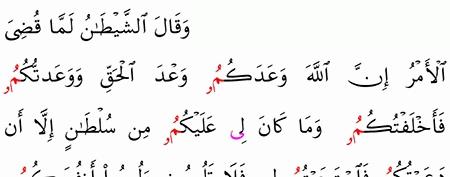 وَقَالَ ٱلشَّيْطَٰنُ لَمَّا قُضِىَ
ٱلْأَمْرُ إِنَّ ٱللَّهَ وَعَدَكُمُۥ وَعْدَ ٱلْحَقِّ وَوَعَدتُّكُمُۥ
فَأَخْلَفْتُكُمُۥ وَمَا كَانَ لِى عَلَيْكُمُۥ مِن سُلْطَٰنٍ إِلَّا أَن